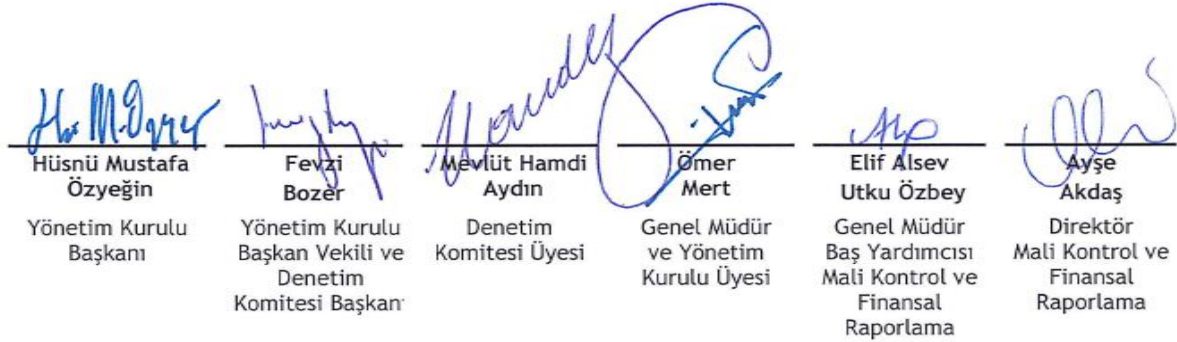 Hüsnü Mustafa
Özyeğin
Yönetim Kurulu
Başkanı
Fevzi
Bozer
Yönetim Kurulu
Başkan Vekili ve
Denetim
Komitesi Başkan
Mevlüt Hamdi
Aydın
Denetim
Komitesi Üyesi
Ömer
Mert
Genel Müdür
ve Yönetim
Kurulu Üyesi
Elif Alsev
Utku Özbey
Genel Müdür
Baş Yardımcısı
Mali Kontrol ve
Finansal
Raporlama
Ayşe
Akdaş
Direktör
Mali Kontrol ve
Finansal
Raporlama